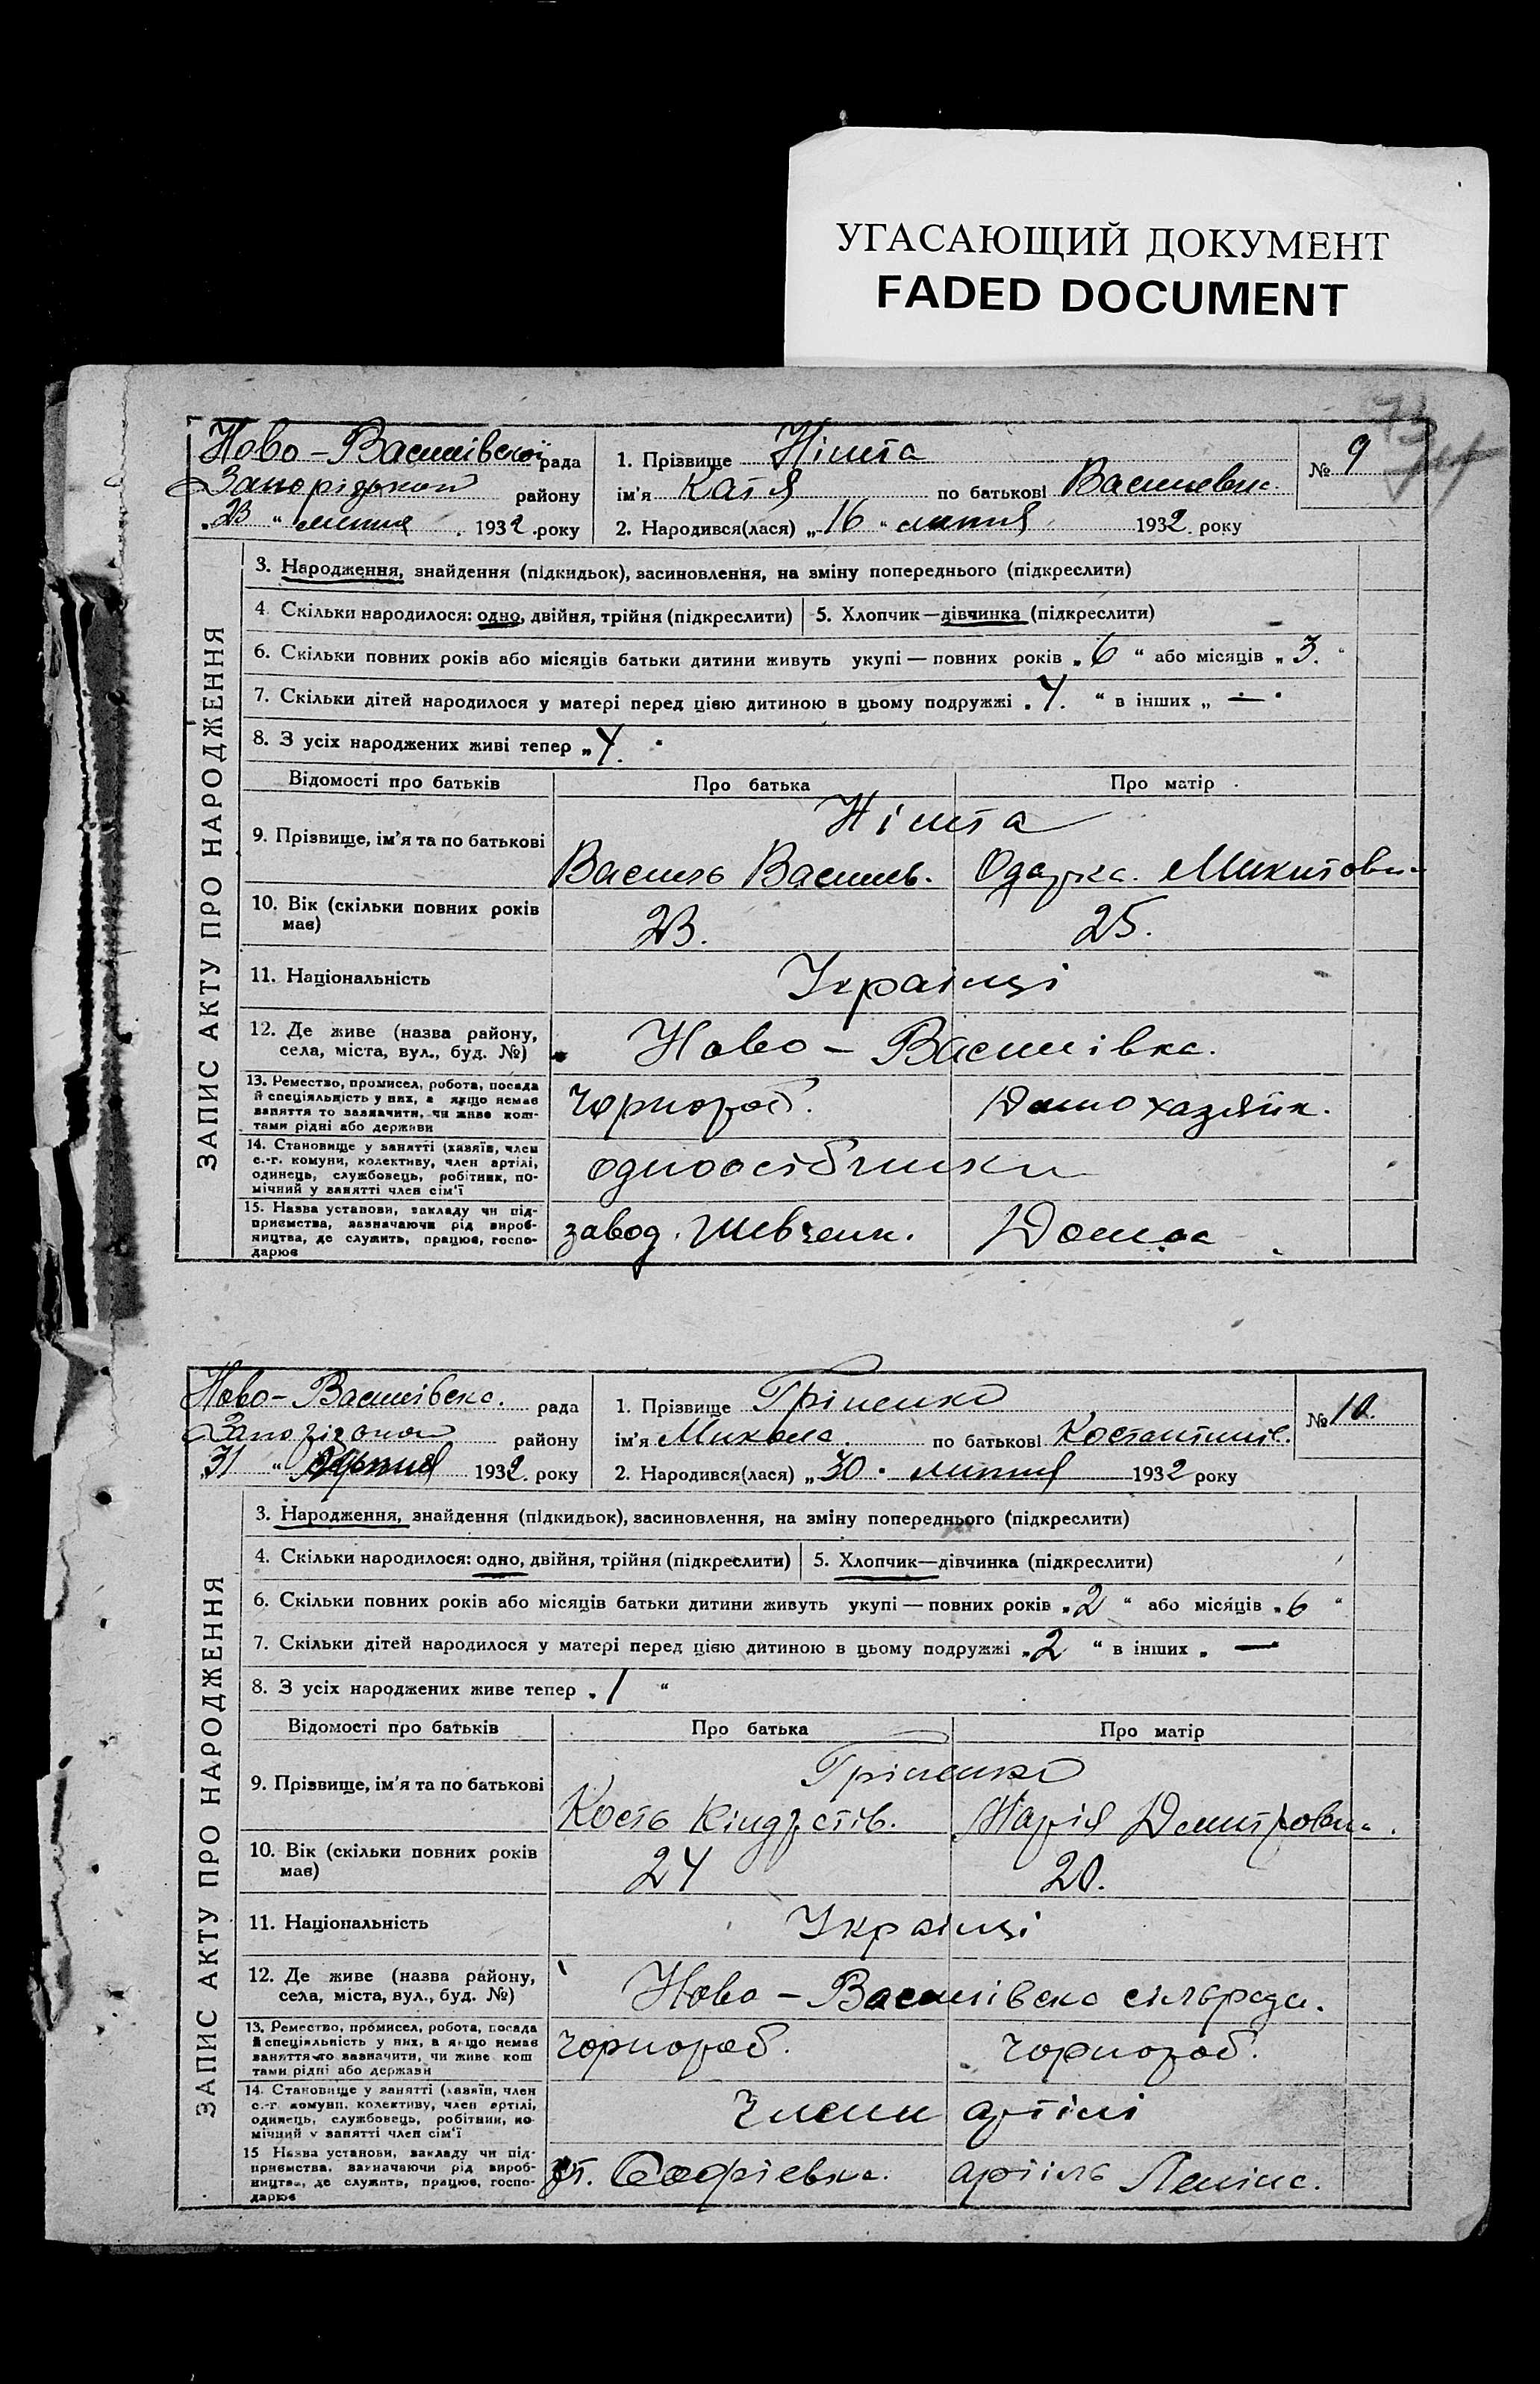 УГАСАЮЩИЙ ДОКУМЕНТ
FADED DOCUMENT
Ново-Василівської рада
району
„23“ липня 1932 року
1. Прізвище Німта
ім'я Катя по батькові Василевн.
2. Народився(лася) „16“ липня 1932 року
№ 9
ЗАПИС АКТУ ПРО НАРОДЖЕННЯ
3. Народження, знайдення (підкидьок), засиновлення, на зміну попереднього (підкреслити)
4. Скільки народилося: одно, двійня, трійня (підкреслити) 5. Хлопчик—дівчинка (підкреслити)
6. Скільки повних років або місяців батьки дитини живуть укупі — повних років „6“ або місяців „3.“
7. Скільки дітей народилося у матері перед цією дитиною в цьому подружжі „4.“ в інших „—
8. З усіх народжених живі тепер „4.
Відомості про батьків Про батька Про матір
9. Прізвище, ім'я та по батькові
Німта
Василь Василь. Одарка. Микитовн
10. Вік (скільки повних років має)
23. 25.
11. Національність Українці
12. Де живе (назва району, села, міста, вул., буд. №)
Ново-Василівка.
13. Ремество, промисел, робота, посада
й спеціяльність у них, а якщо немає
заняття то зазначити, чи живе кош-
тами рідні або держави
Чорнороб. Домохазяйк.
14. Становище у занятті (хазяїн, член
с.-г. комуни, колективу, член артілі,
одинець, службовець, робітник, по-
мічний у занятті член сім'ї
одноосібники
15. Назва установи, закладу чи під-
приємства, зазначаючи рід вироб-
ництва, де служить, працює, госпо-
дарює
завод. Шевченк. Дома
Ново-Василівськ. рада
району
31 “ 1932 року
1. Прізвище Гріненко
ім'я Микола по батькові Костантинів.
2. Народився(лася) „30. липня 1932 року
№ 10.
ЗАПИС АКТУ ПРО НАРОДЖЕННЯ
3. Народження, знайдення (підкидьок), засиновлення, на зміну попереднього (підкреслити)
4. Скільки народилося: одно, двійня, трійня (підкреслити) 5. Хлопчик—дівчинка (підкреслити)
6. Скільки повних років або місяців батьки дитини живуть укупі — повних років „2“ або місяців „6“
7. Скільки дітей народилося у матері перед цією дитиною в цьому подружжі „2“ в інших „—
8. З усіх народжених живе тепер „1“
Відомості про батьків Про батька Про матір
9. Прізвище, ім'я та по батькові
Гріненко
Кость Марія Дмитровн.
10. Вік (скільки повних років має)
24 20.
11. Національність Українці
12. Де живе (назва району, села, міста, вул., буд. №)
Ново-Василівська сільрада.
13. Ремество, промисел, робота, посада
й спеціяльність у них, а якщо немає
заняття то зазначити, чи живе кош
тами рідні або держави
Чорнороб. Чорнороб.
14. Становище у занятті (хазяїн, член
с.-г комуни, колективу, член артілі,
одинець, службовець, робітник, по
мічний у занятті член сім'ї
Члени артілі
15 Назва установи, закладу чи під-
приємства, зазначаючи рід вироб-
ництва, де служить, працює, госпо-
дарює
ст. Софіевка. артіль Леніна.